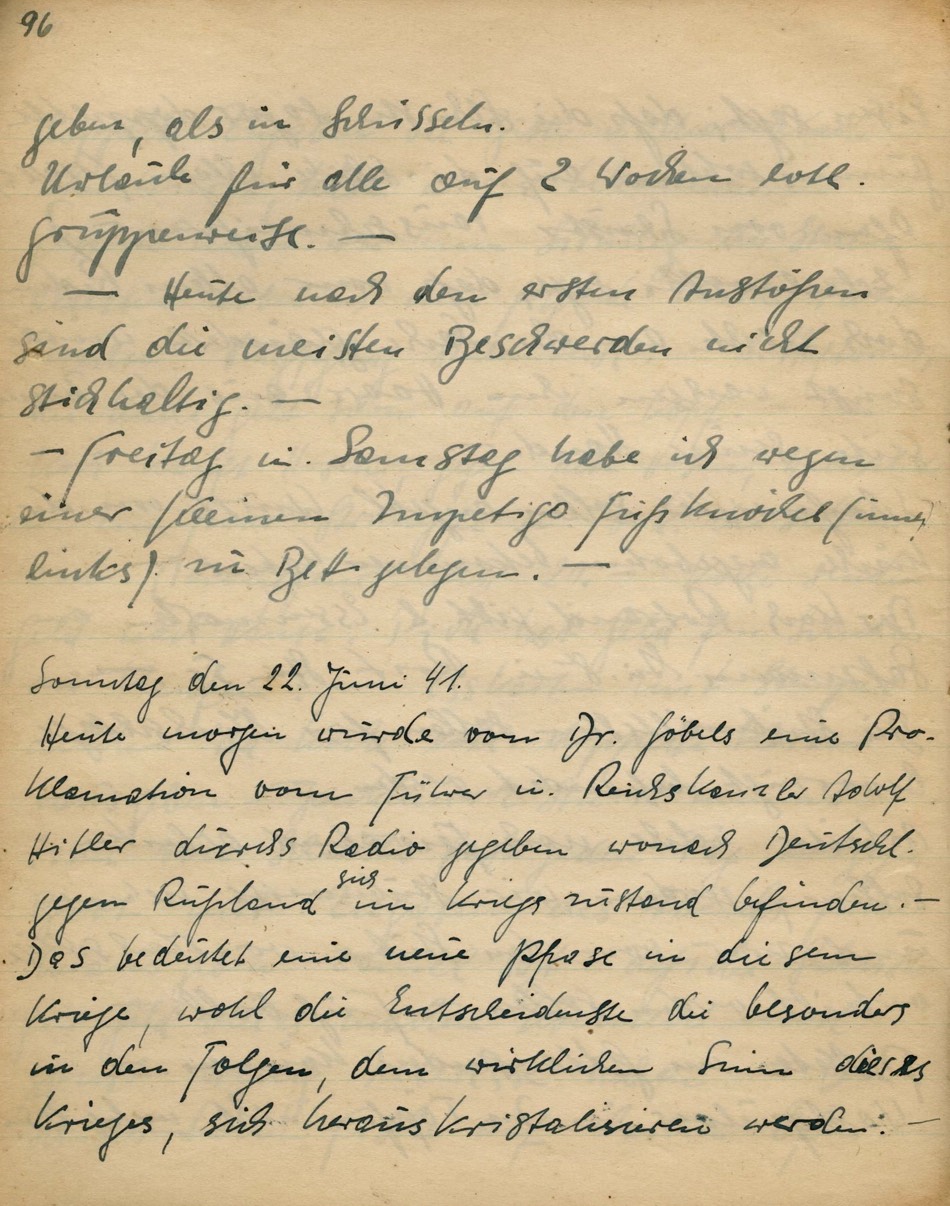 96
geben, als in Schüsseln.
Urlaub für alle auf 2 Wochen evtl.
gruppenweise. —
— Heute nach den ersten Anstößen
sind die meisten Beschwerden nicht
stichhaltig. —
— Freitag u. Samstag habe ich wegen
einer kleinen Impetigo Fußknöchel (innen
links) zu Bett gelegen. —
Sonntag den 22. Juni 41.
Heute morgen wurde vom Dr. Göbels eine Pro-
klamation vom Führer u. Reichskanzler Adolf
Hitler durchs Radio gegeben wonach Deutschl.
gegen Rußland sich im Kriegszustand befinden. —
Das bedeutet eine neue Pfase in diesem
Kriege, wohl die Entscheidenste die besonders
in den Folgen, dem wirklichen Sinn dieses
Krieges, sich herauskristalisieren werden. —